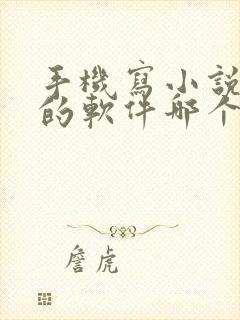 手機寫小說
的軟件哪个
詹虎